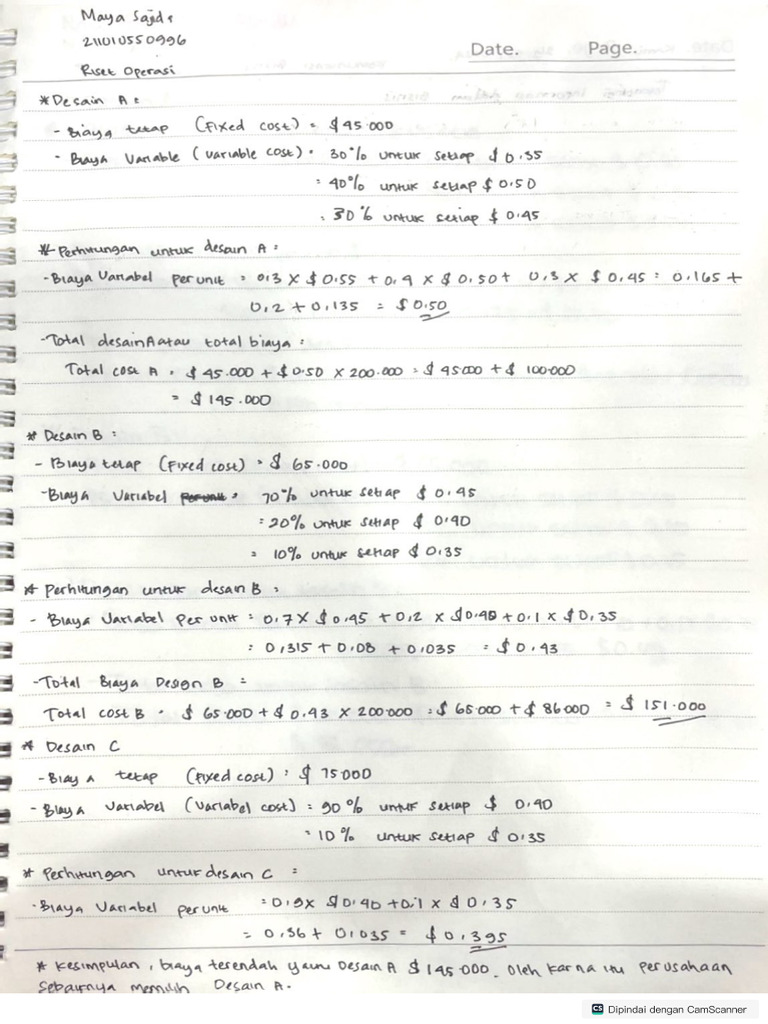 Maya Sajida
211010550996
Riset Operasi
Date. Page.
* Desain A :
- Biaya tetap (Fixed cost) = $ 45.000
- Biaya Variable (variable cost) = 30% untuk setiap $ 0.55
= 40% untuk setiap $ 0.50
= 30% untuk setiap $ 0.45
* Perhitungan untuk desain A :
- Biaya Variabel per unit = 0,3 X $ 0.55 + 0,4 X $ 0.50 + 0,3 X $ 0.45 = 0,165 +
0,2 + 0,135 = $ 0.50
- Total desain A atau total biaya :
Total cost A = $ 45.000 + $ 0.50 X 200.000 = $ 45000 + $ 100.000
= $ 145.000
* Desain B :
- Biaya tetap (Fixed cost) = $ 65.000
- Biaya Variabel = 70% untuk setiap $ 0.45
= 20% untuk setiap $ 0.40
= 10% untuk setiap $ 0.35
* Perhitungan untuk desain B :
- Biaya Variabel Per unit = 0,7 X $ 0.45 + 0,2 X $ 0.40 + 0,1 X $ 0,35
= 0,315 + 0,08 + 0,035 = $ 0.43
- Total Biaya Design B =
Total cost B = $ 65.000 + $ 0.43 X 200.000 = $ 65.000 + $ 86000 = $ 151.000
* Desain C
- Biaya tetap (Fixed cost) : $ 75000
- Biaya Variabel (Variabel cost) = 90% untuk setiap $ 0,40
= 10% untuk setiap $ 0.35
* Perhitungan untuk desain C =
- Biaya Variabel per unit = 0,9 X $ 0.40 + 0,1 X $ 0.35
= 0,36 + 0,035 = $ 0,395
* Kesimpulan, biaya terendah yaitu Desain A $ 145.000. Oleh karna itu perusahaan
sebaiknya memilih Desain A.
CS Dipindai dengan CamScanner